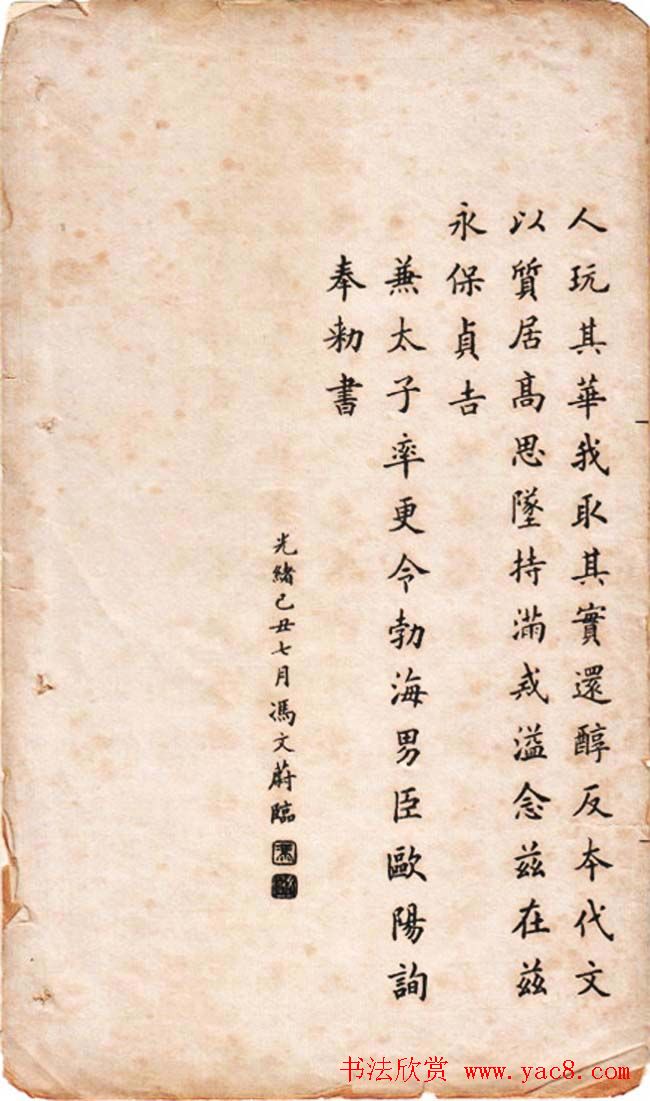 人玩其華我取其實還醇反本代文
以質居高思墜持滿戒溢念茲在茲
永保貞吉
兼太子率更令勃海男臣歐陽詢
奉勅書
光緒己丑七月馮文蔚臨
馮
书法欣赏 www.yac8.com